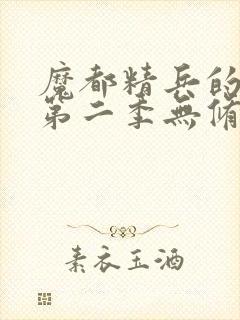 魔都精兵的
第二季無脩
素衣玉酒